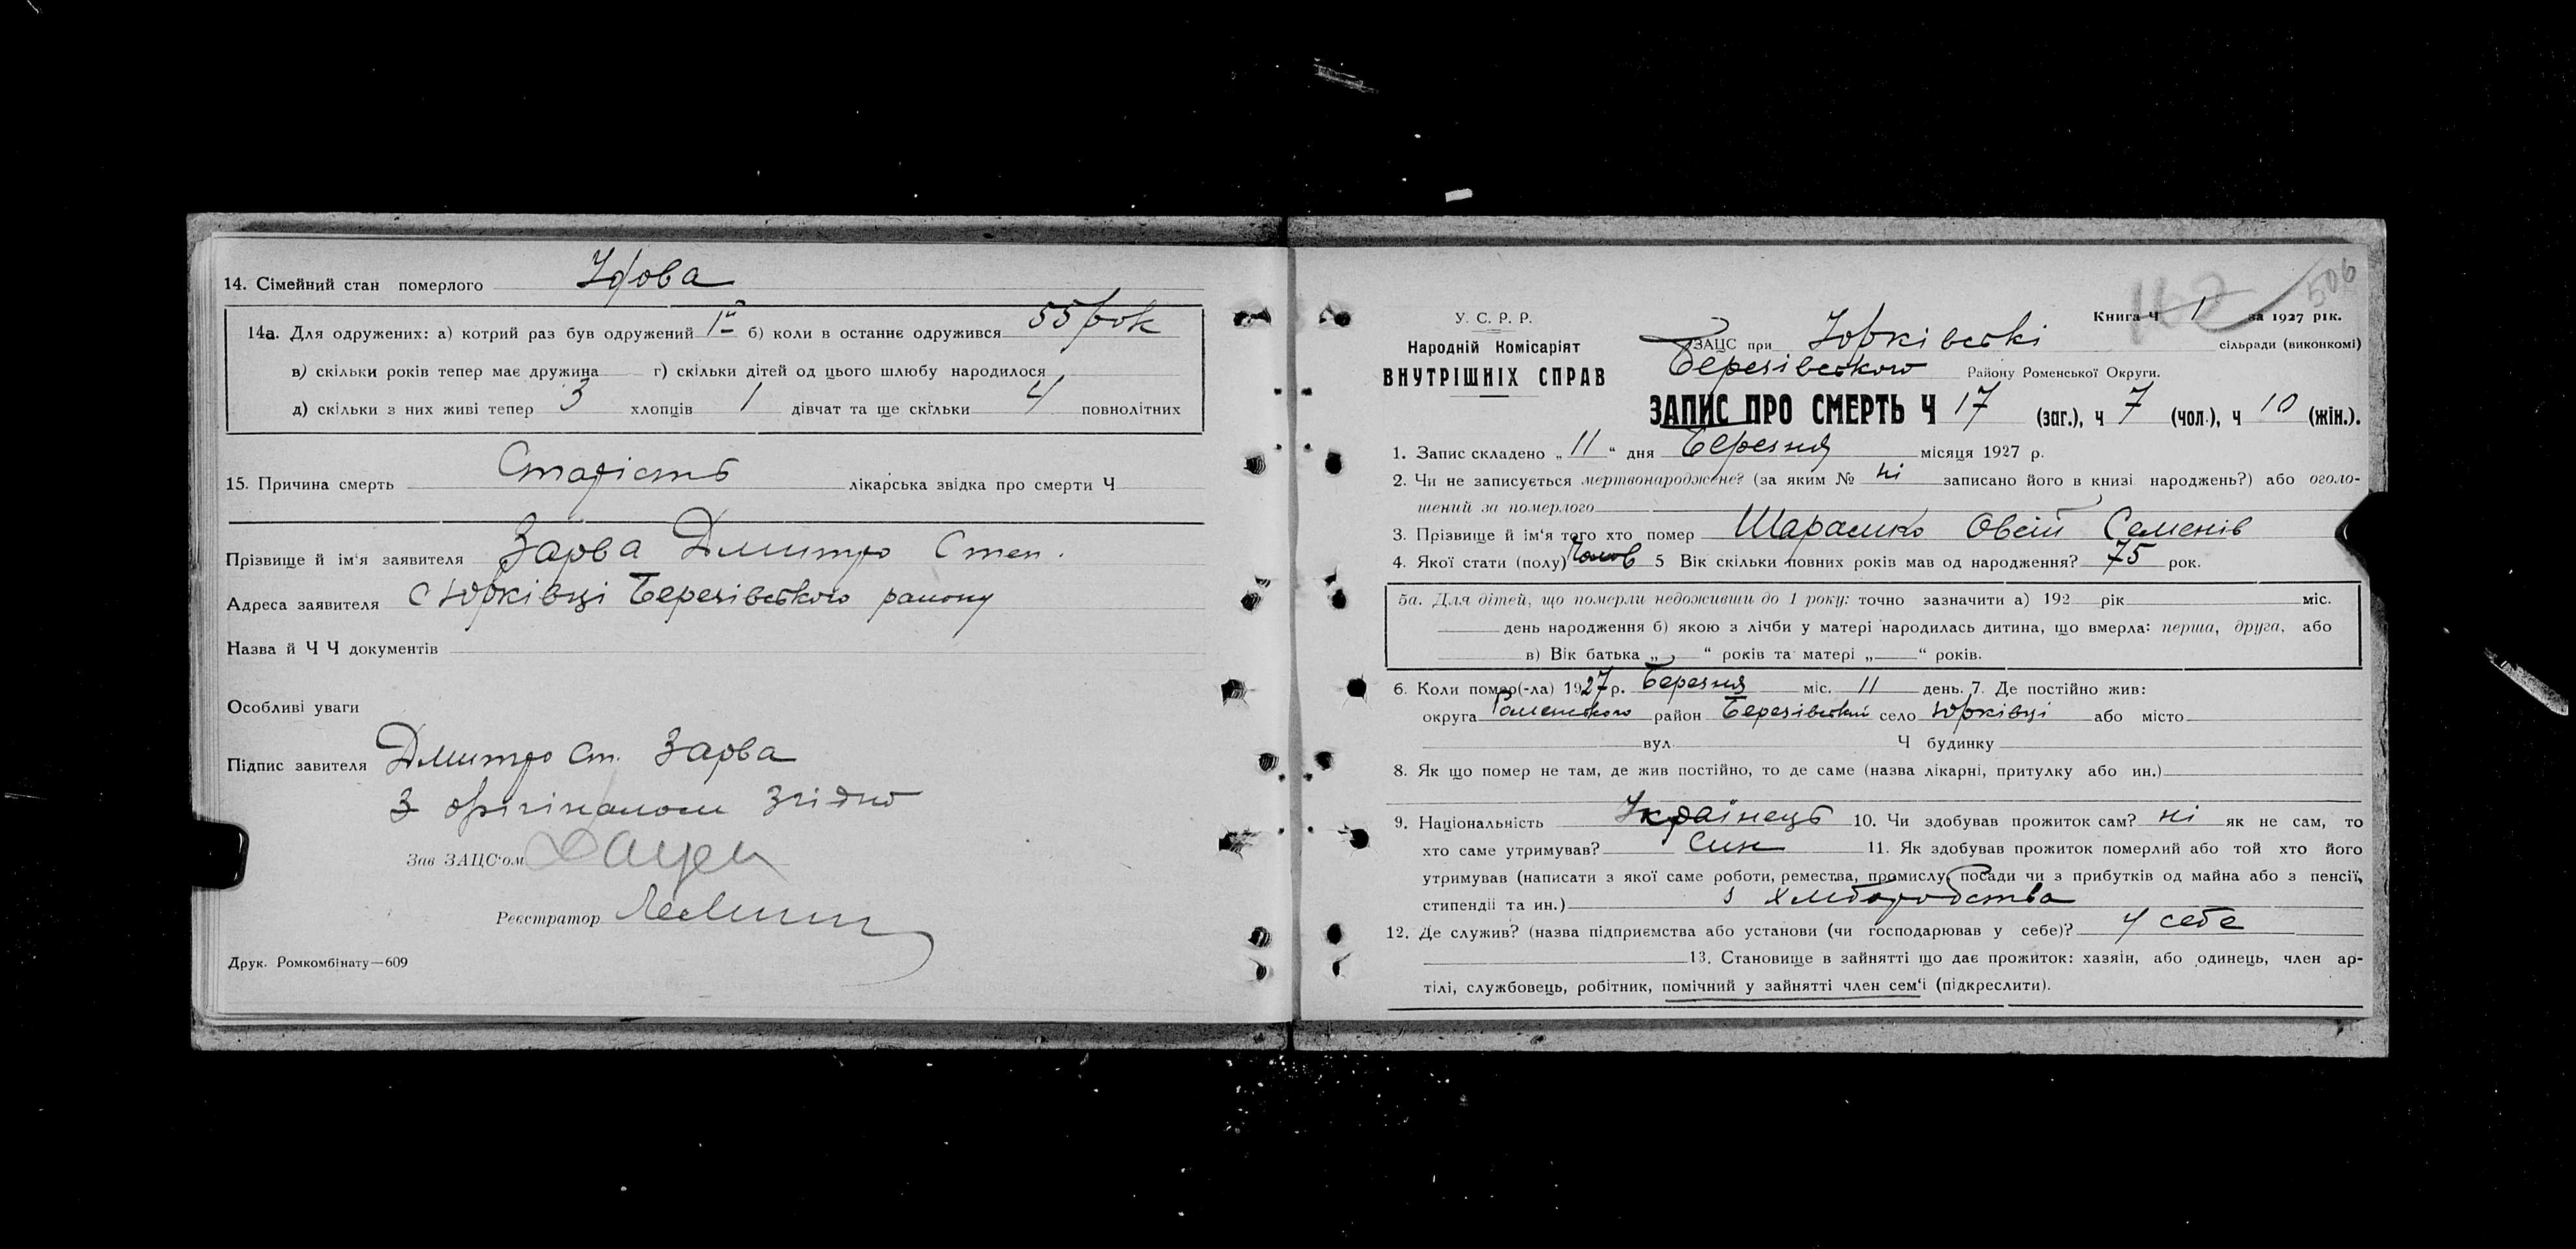 14. Сімейний стан померлого Удова
14а. Для одружених: а) котрий раз був одружений 1й б) коли в останнє одружився 55 рок
в) скільки років тепер має дружина г) скільки дітей од цього шлюбу народилося
д) скільки з них живі тепер 3 хлопців 1 дівчат та ще скільки 4 повнолітних
15. Причина смерть Старість лікарська звідка про смерти Ч
Прізвище й ім'я заявителя Зарва Дмитро Степ.
Адреса заявителя с Юрківці Березівського району
Назва й Ч Ч документів
Особливі уваги
Підпис завителя Дмитро Ст. Зарва
З орігіналом згідно
Зав ЗАЦС'ом
Реєстратор
Друк. Ромкомбінату—609
506
У. С. Р. Р.
Народній Комісаріят
ВНУТРІШНІХ СПРАВ
Книга Ч 1 за 1927 рік.
ЗАЦС при Юрківські сільради (виконкомі)
Березівського Району Роменської Округи.
ЗАПИС ПРО СМЕРТЬ Ч 17 (заг.), ч 7 (чол.), ч 10 (жін.).
1. Запис складено „ 11 “ дня Березня місяця 1927 р.
2. Чи не записується мертвонароджене? (за яким № ні записано його в книзі народжень?) або оголо-
шений за померлого
3. Прізвище й ім'я того хто помер Овсій Семенів
4. Якої стати (полу) Чолов 5 Вік скільки повних років мав од народження? 75 рок.
5а. Для дітей, що померли недоживши до 1 року: точно зазначити а) 192 рік міс.
день народження б) якою з лічби у матері народилась дитина, що вмерла: перша, друга, або
в) Вік батька „ “ років та матері „ “ років.
6. Коли помер(-ла) 1927 р. Березня міс. 11 день. 7. Де постійно жив:
округа Роменського район Березівський село Юрківці або місто
вул. Ч будинку
8. Як що помер не там, де жив постійно, то де саме (назва лікарні, притулку або ин.)
9. Національність Українець 10. Чи здобував прожиток сам? ні як не сам, то
хто саме утримував? Син 11. Як здобував прожиток померлий або той хто його
утримував (написати з якої саме роботи, ремества, промислу, посади чи з прибутків од майна або з пенсії,
стипендії та ин.) з хліборобства
12. Де служив? (назва підприємства або установи (чи господарював у себе)? у себе
13. Становище в зайнятті що дає прожиток: хазяін, або одинець, член ар-
тілі, службовець, робітник, помічний у зайнятті член сем'і (підкреслити).